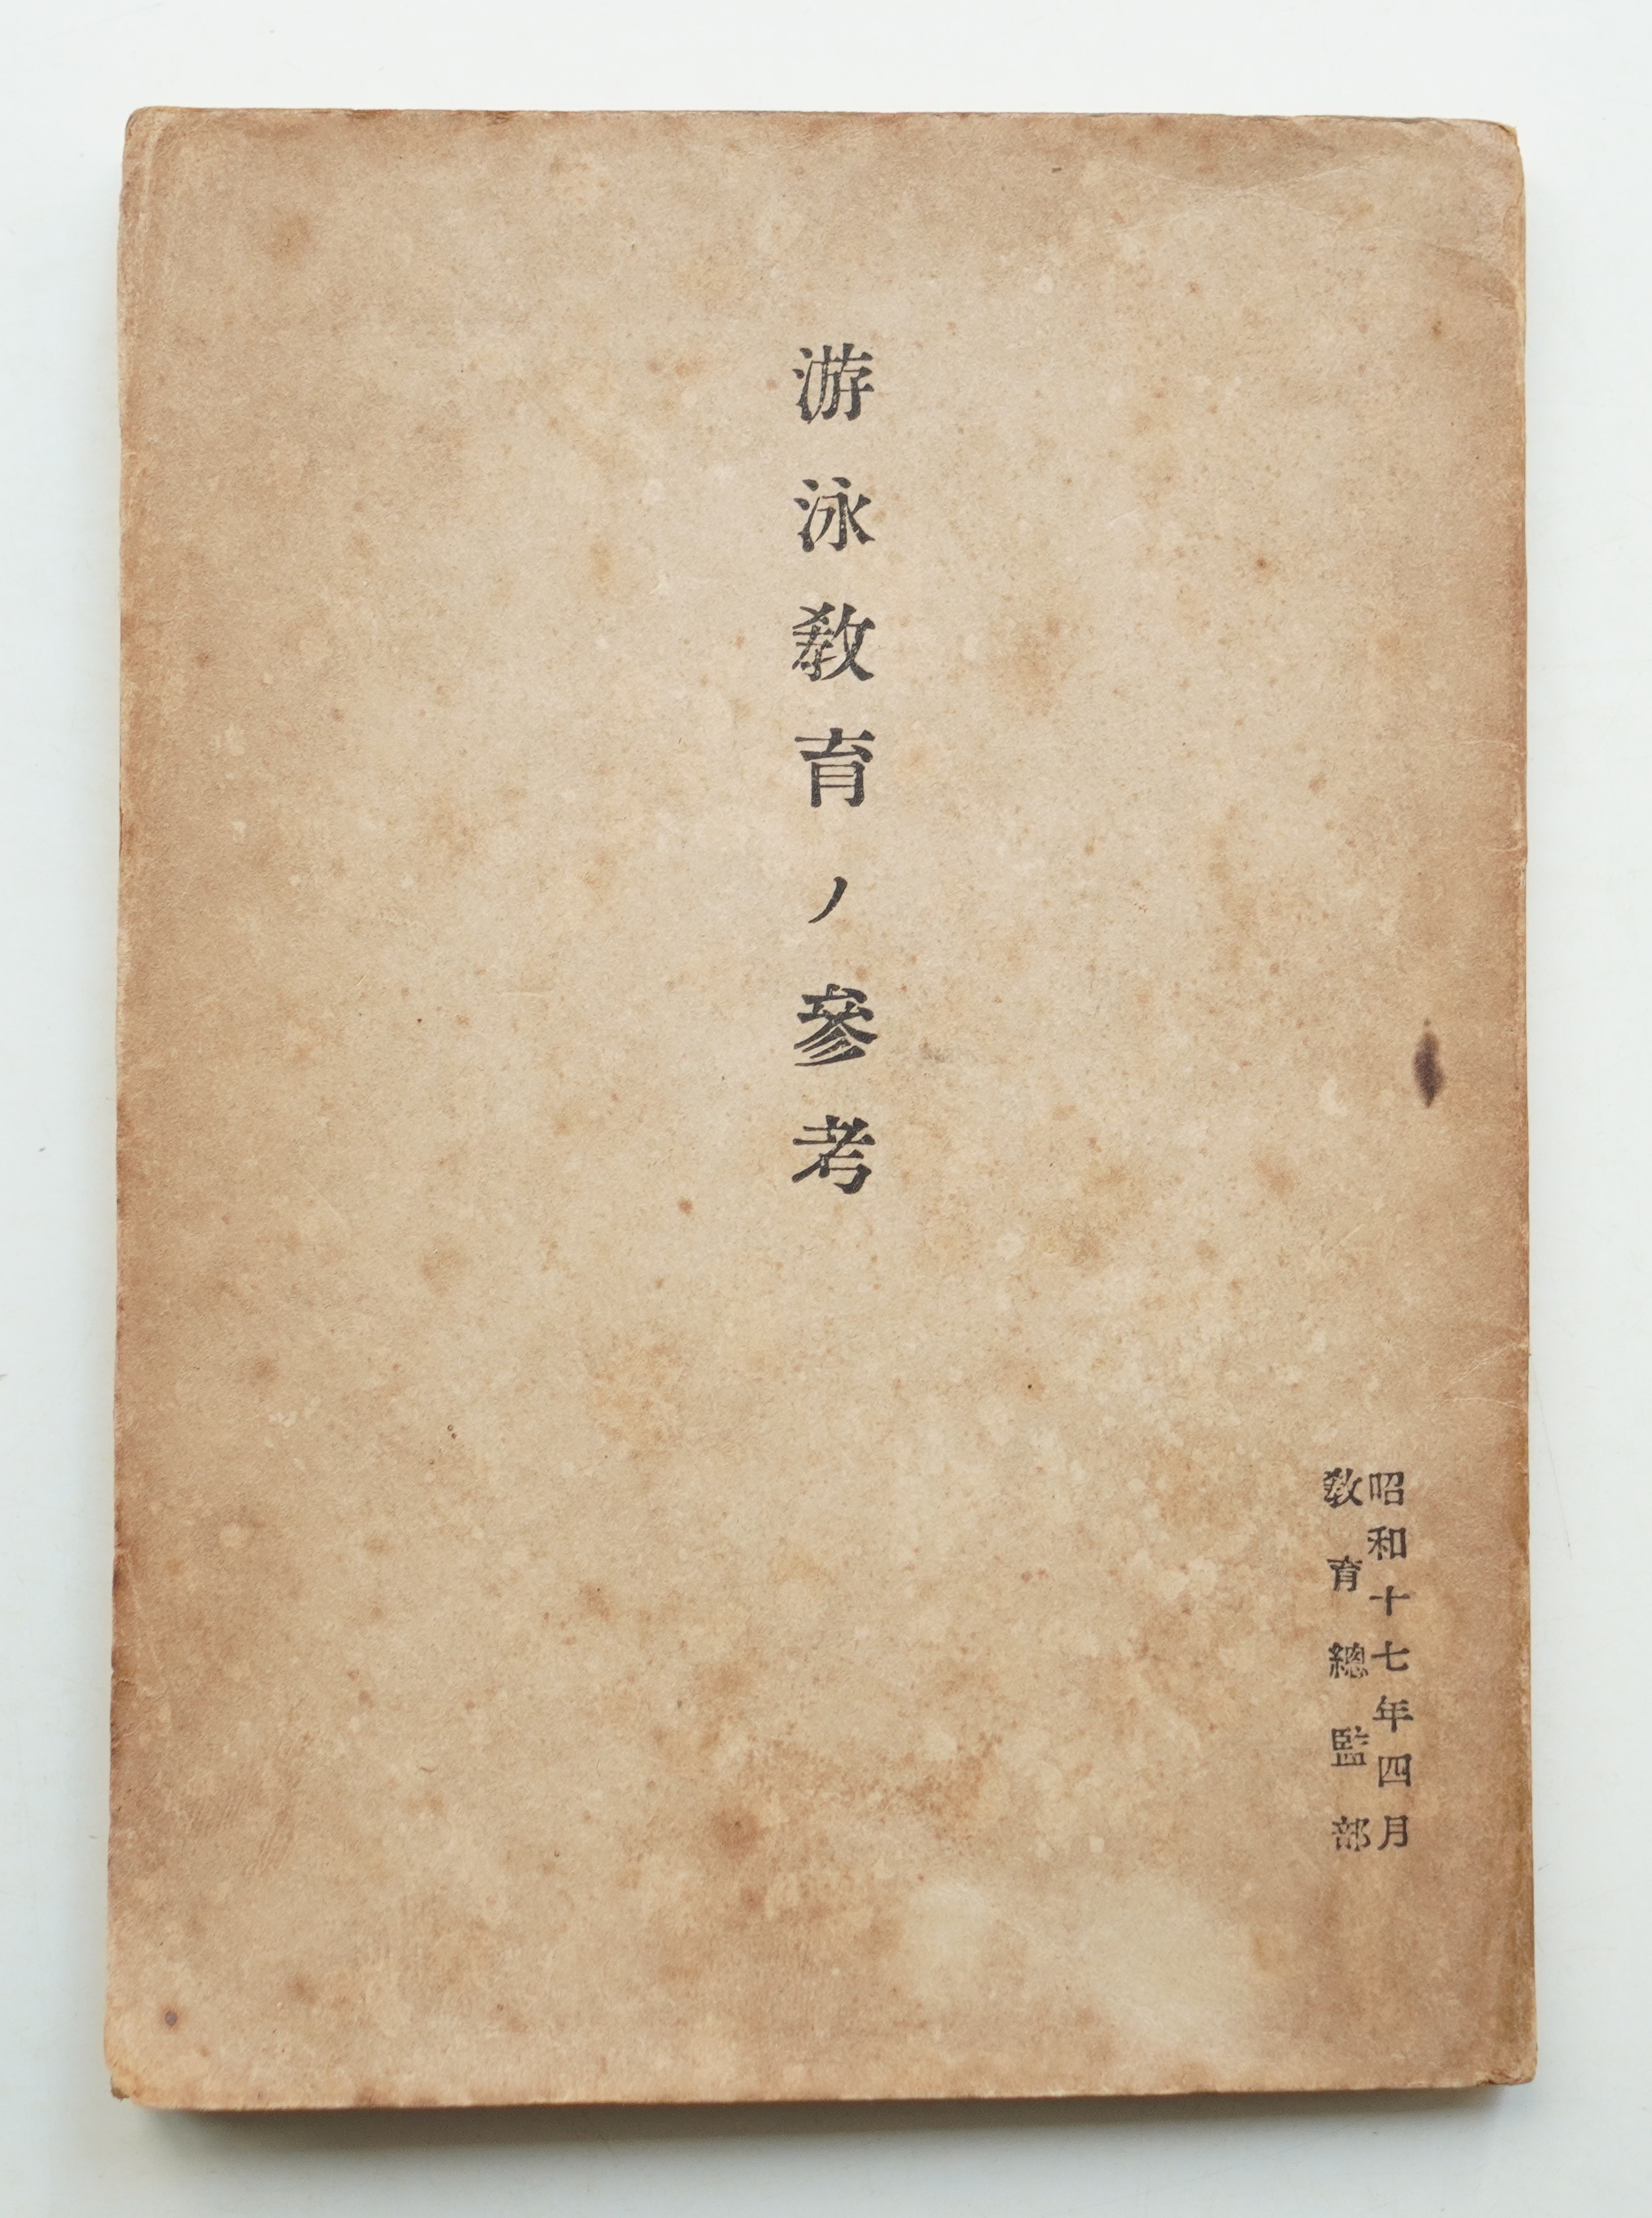 游泳敎育ノ參考
昭和十七年四月
敎育總監部